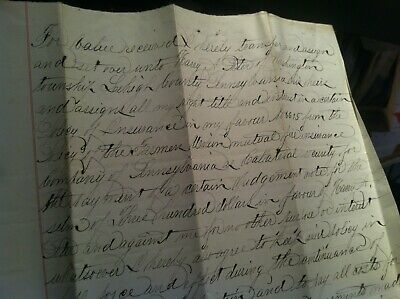 For Value received I hereby transfer and assign
and set over unto Henry N. Peter of Washington
township Lehigh County Pennsylvania his heirs
and assigns all my right title and interest in a certain
Policy of Insurance in my favour No 815 from the
of the Farmers Union mutual fire insurance
Company of Pennsylvania as Collateral security for
the payment of a certain Judgement note for the
sum of Three hundred dollars in favour of Henry
Peter and against me for no other purpose or interest
whatsoever I hereby also agree to keep said policy in
force and effect during the continuance of
and to pay all costs
made